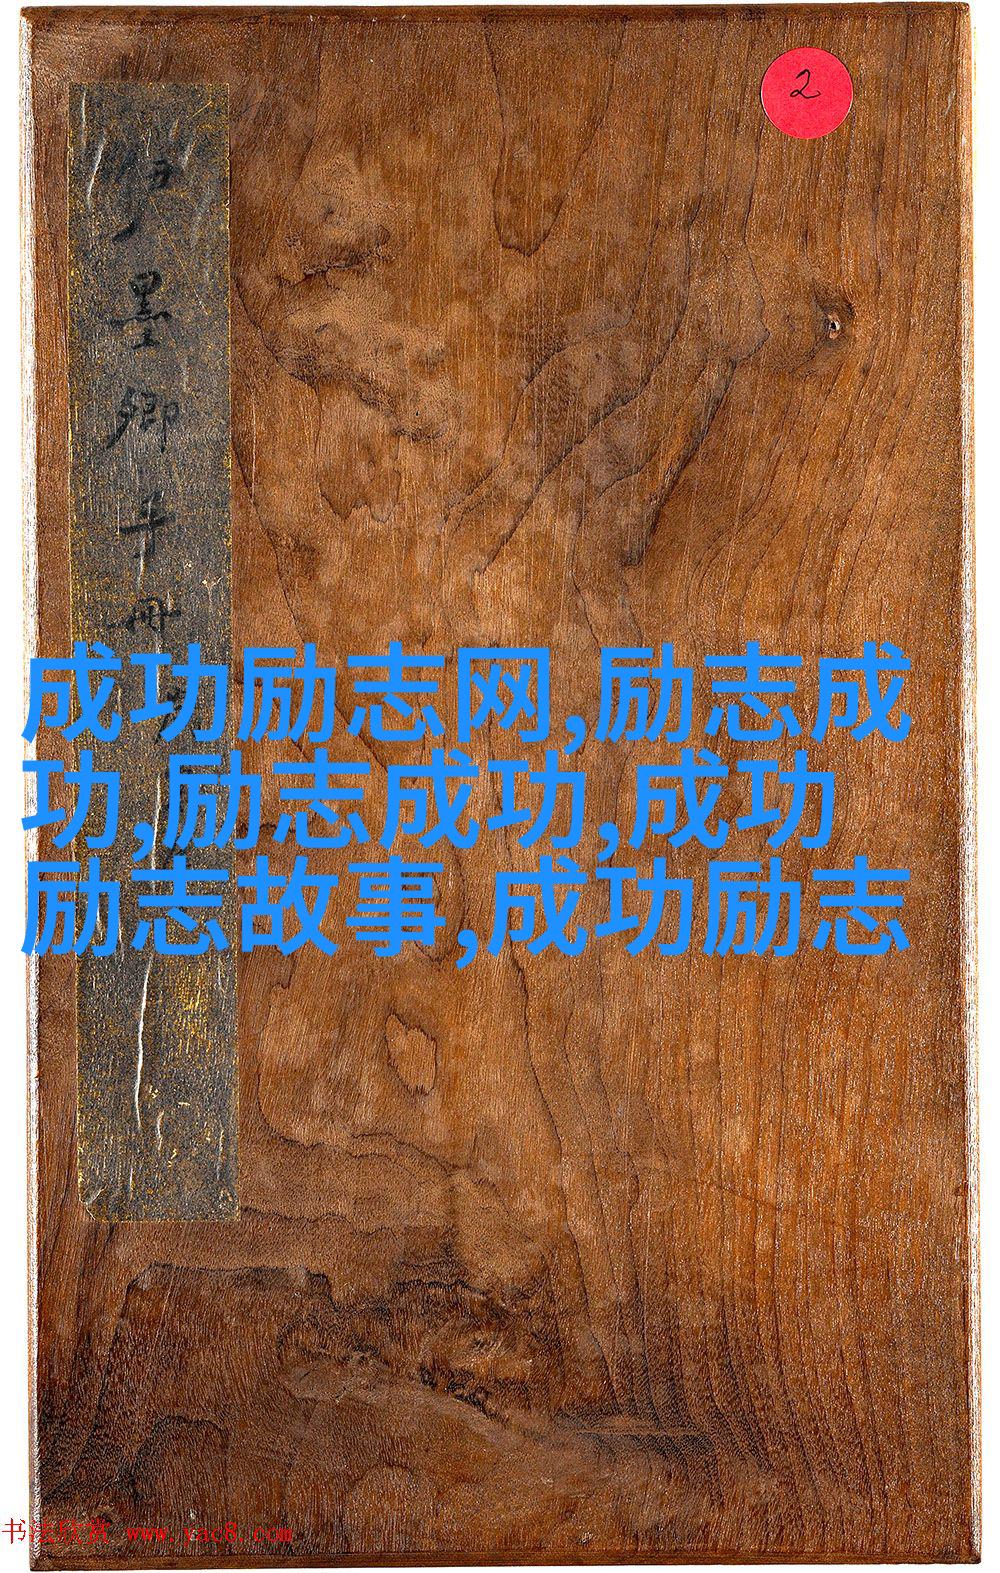 2
墨卿手冊
成功励志网,励志成
功,励志成功,成功
励志故事,成功励志
书法欣赏 www.yac8.com